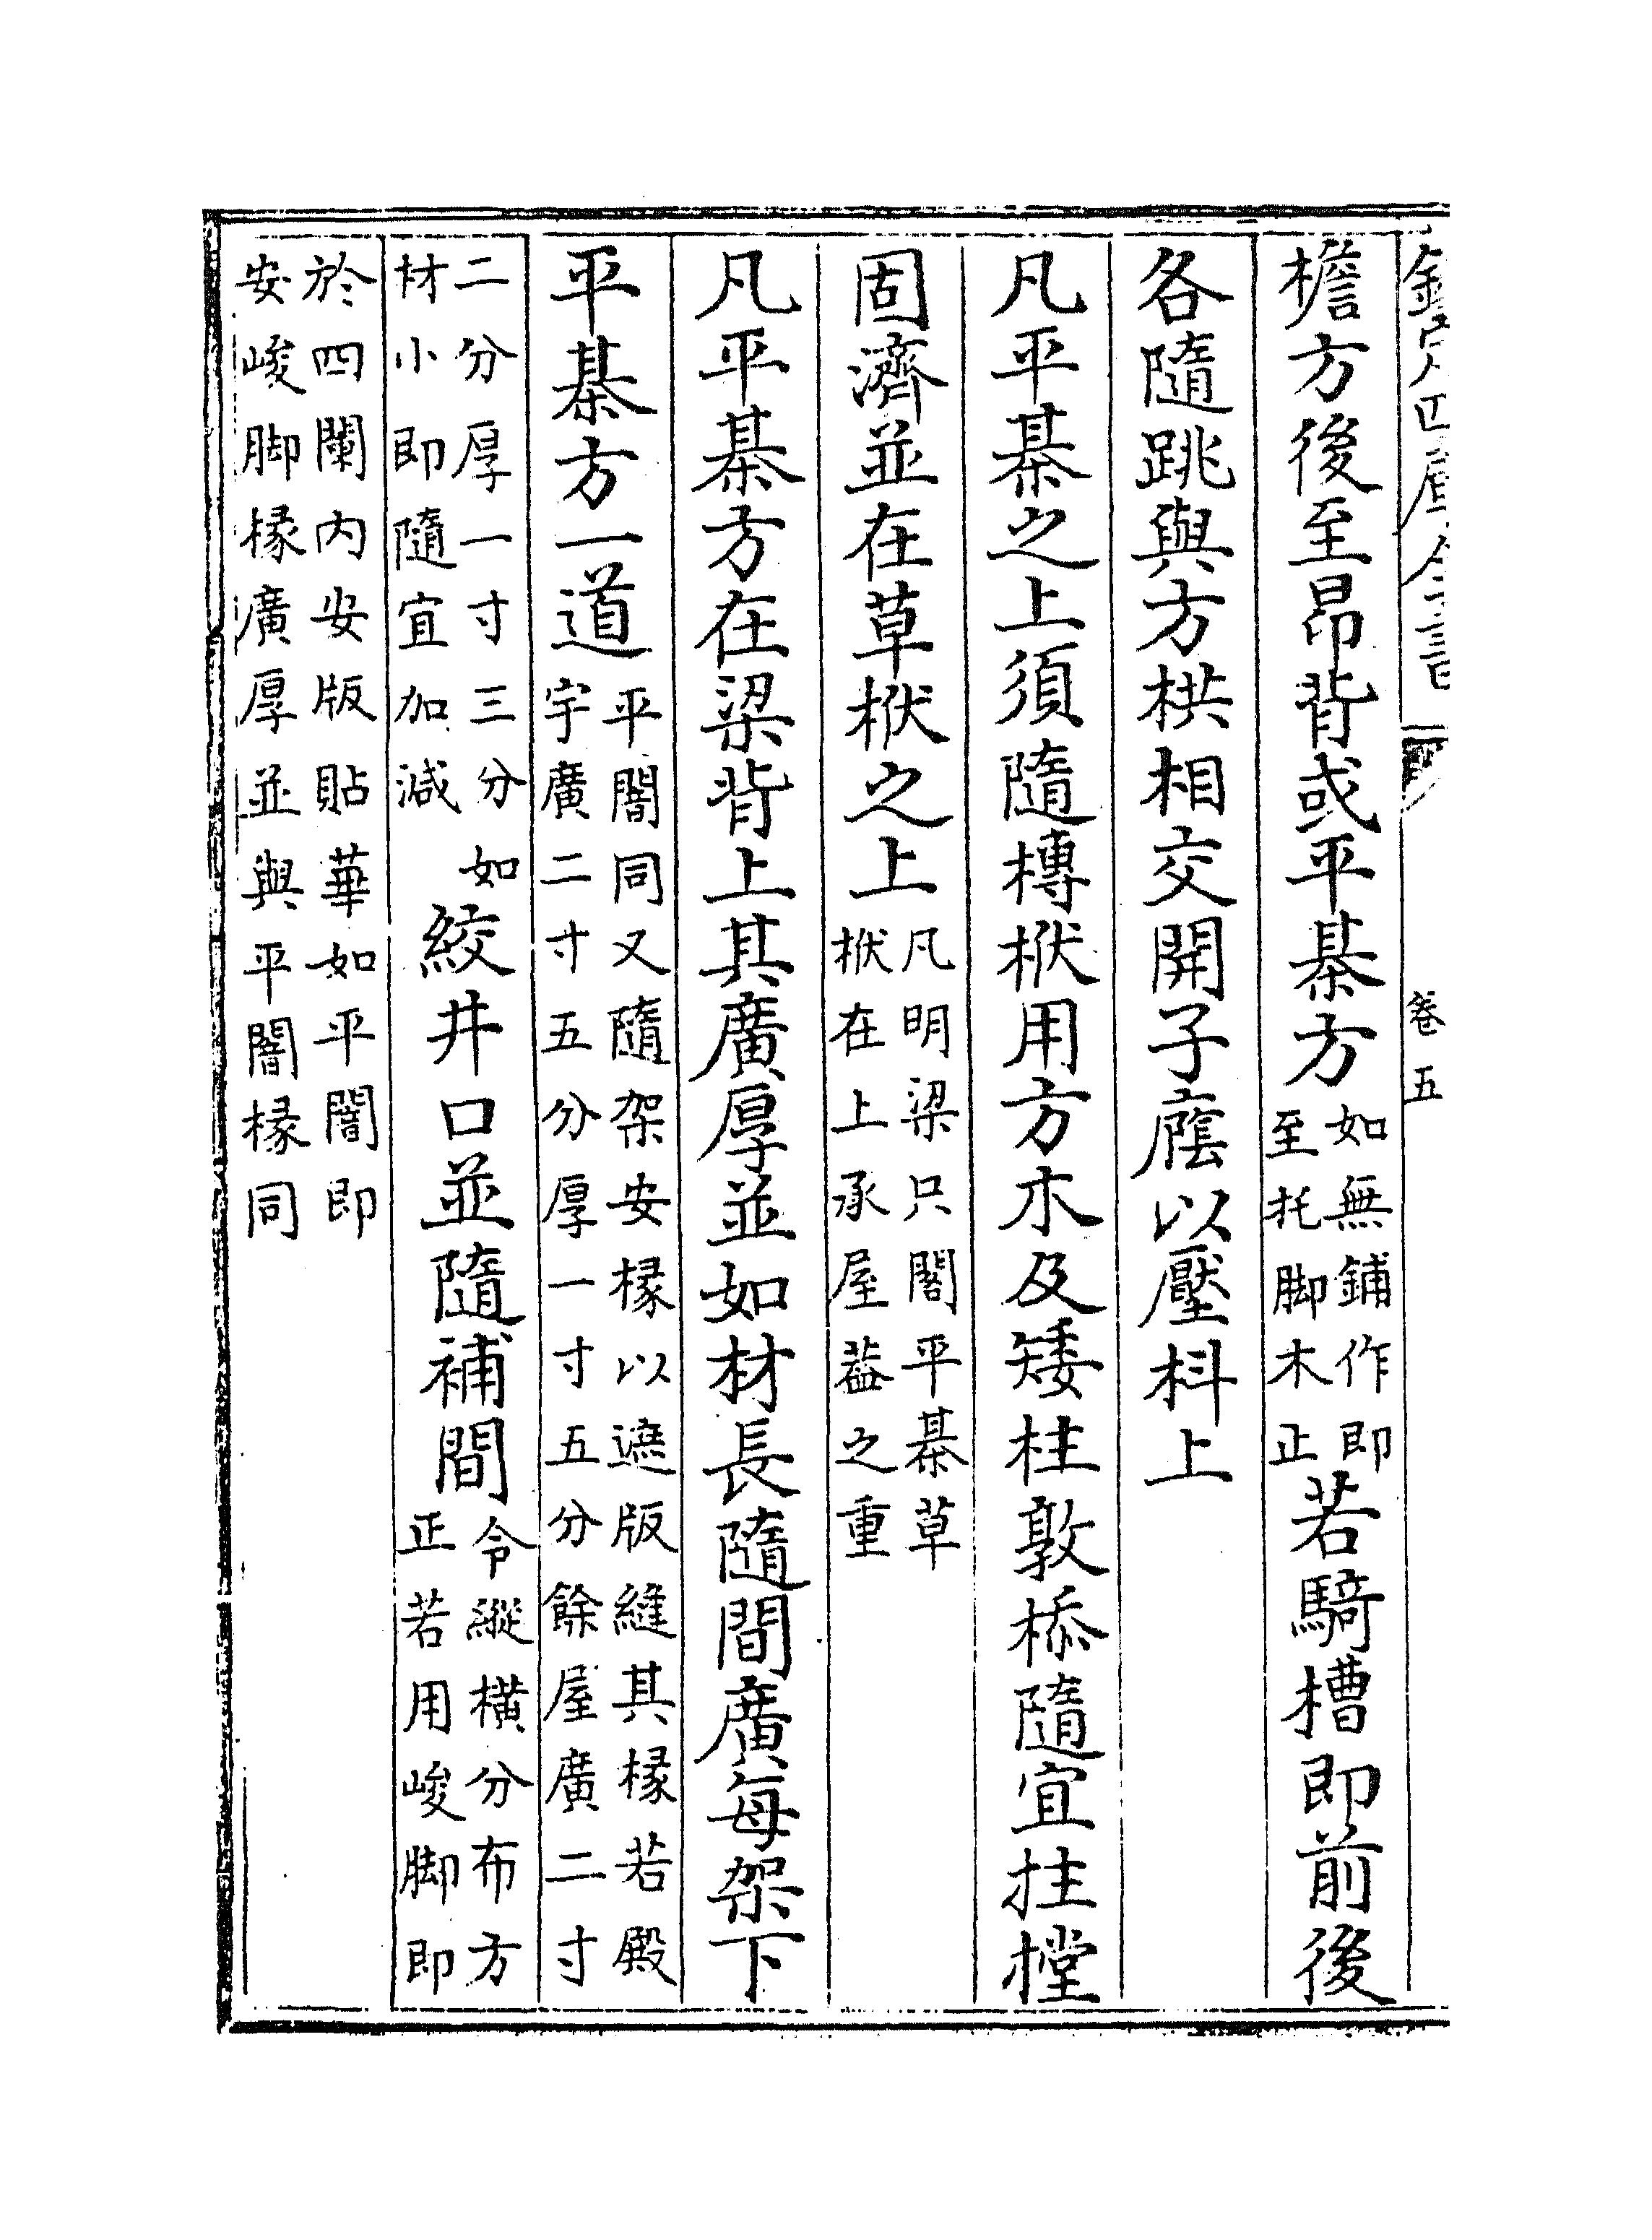 欽定四庫全書 卷五
檐方後至昂背或平棊方如無鋪作即至托脚木正若騎槽即前後
各隨跳與方栱相交開子廕以壓枓上
凡平棊之上須隨槫栿用方木及矮柱敦㮇隨宜拄樘
固濟並在草栿之上凡明梁只閣平棊草栿在上承屋葢之重
凡平棊方在梁背上其廣厚並如材長隨間廣每架下
平棊方一道平闇同又隨架安椽以遮版縫其椽若殿宇廣二寸五分厚一寸五分餘屋廣二寸
二分厚一寸三分如材小即隨宜加減絞井口並隨補間令縱橫分布方正若用峻脚即
於四闌内安版貼華如平闇即安峻脚椽廣厚並與平闇椽同